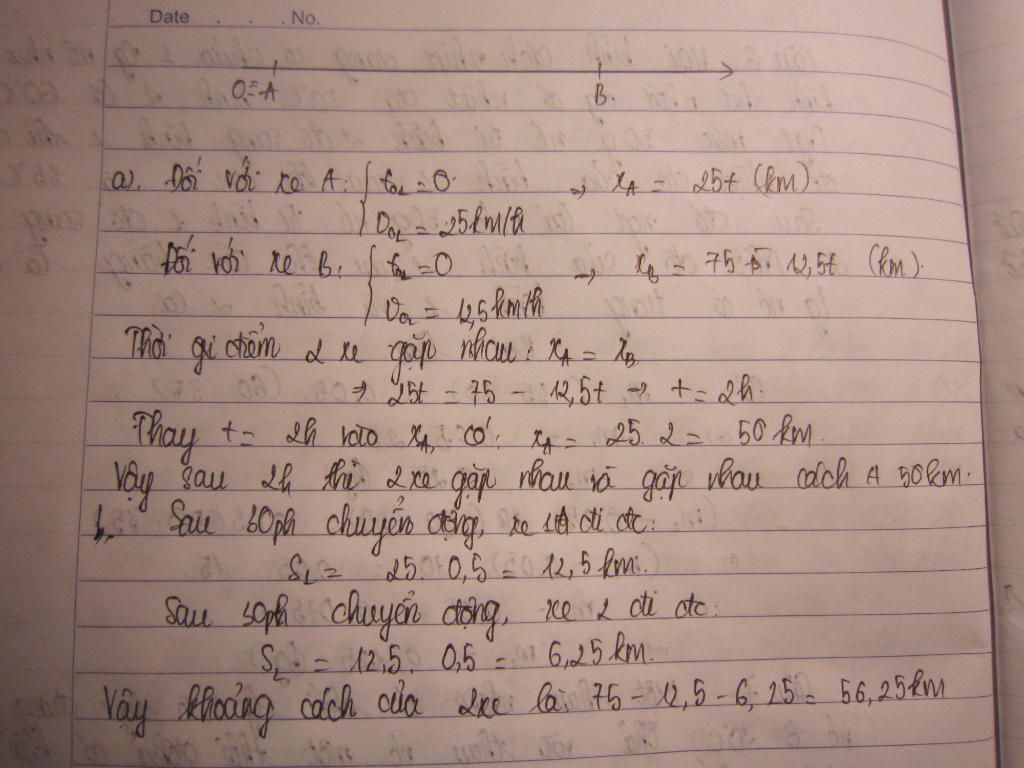 Date . . . No.
O≡A B.
a). Đối với xe A: { t₀₁ = 0. ⇒ x_A = 25t (km)
v₀₁ = 25km/h
Đối với xe B: { t₀₂ = 0 ⇒ x_B = 75 - 12,5t (km).
v₀₂ = 12,5km/h
Thời gi điểm 2 xe gặp nhau: x_A = x_B
⇒ 25t = 75 - 12,5t ⇒ t = 2h.
Thay t = 2h vào x_A, có: x_A = 25. 2 = 50 km.
Vậy sau 2h thì 2 xe gặp nhau và gặp nhau cách A 50km.
b, Sau 30ph chuyển động, xe 1 đi đc:
S₁ = 25. 0,5 = 12,5 km.
Sau 30ph chuyển động, xe 2 đi đc:
S₂ = 12,5. 0,5 = 6,25 km.
Vậy khoảng cách của 2xe là: 75 - 12,5 - 6,25 = 56,25km